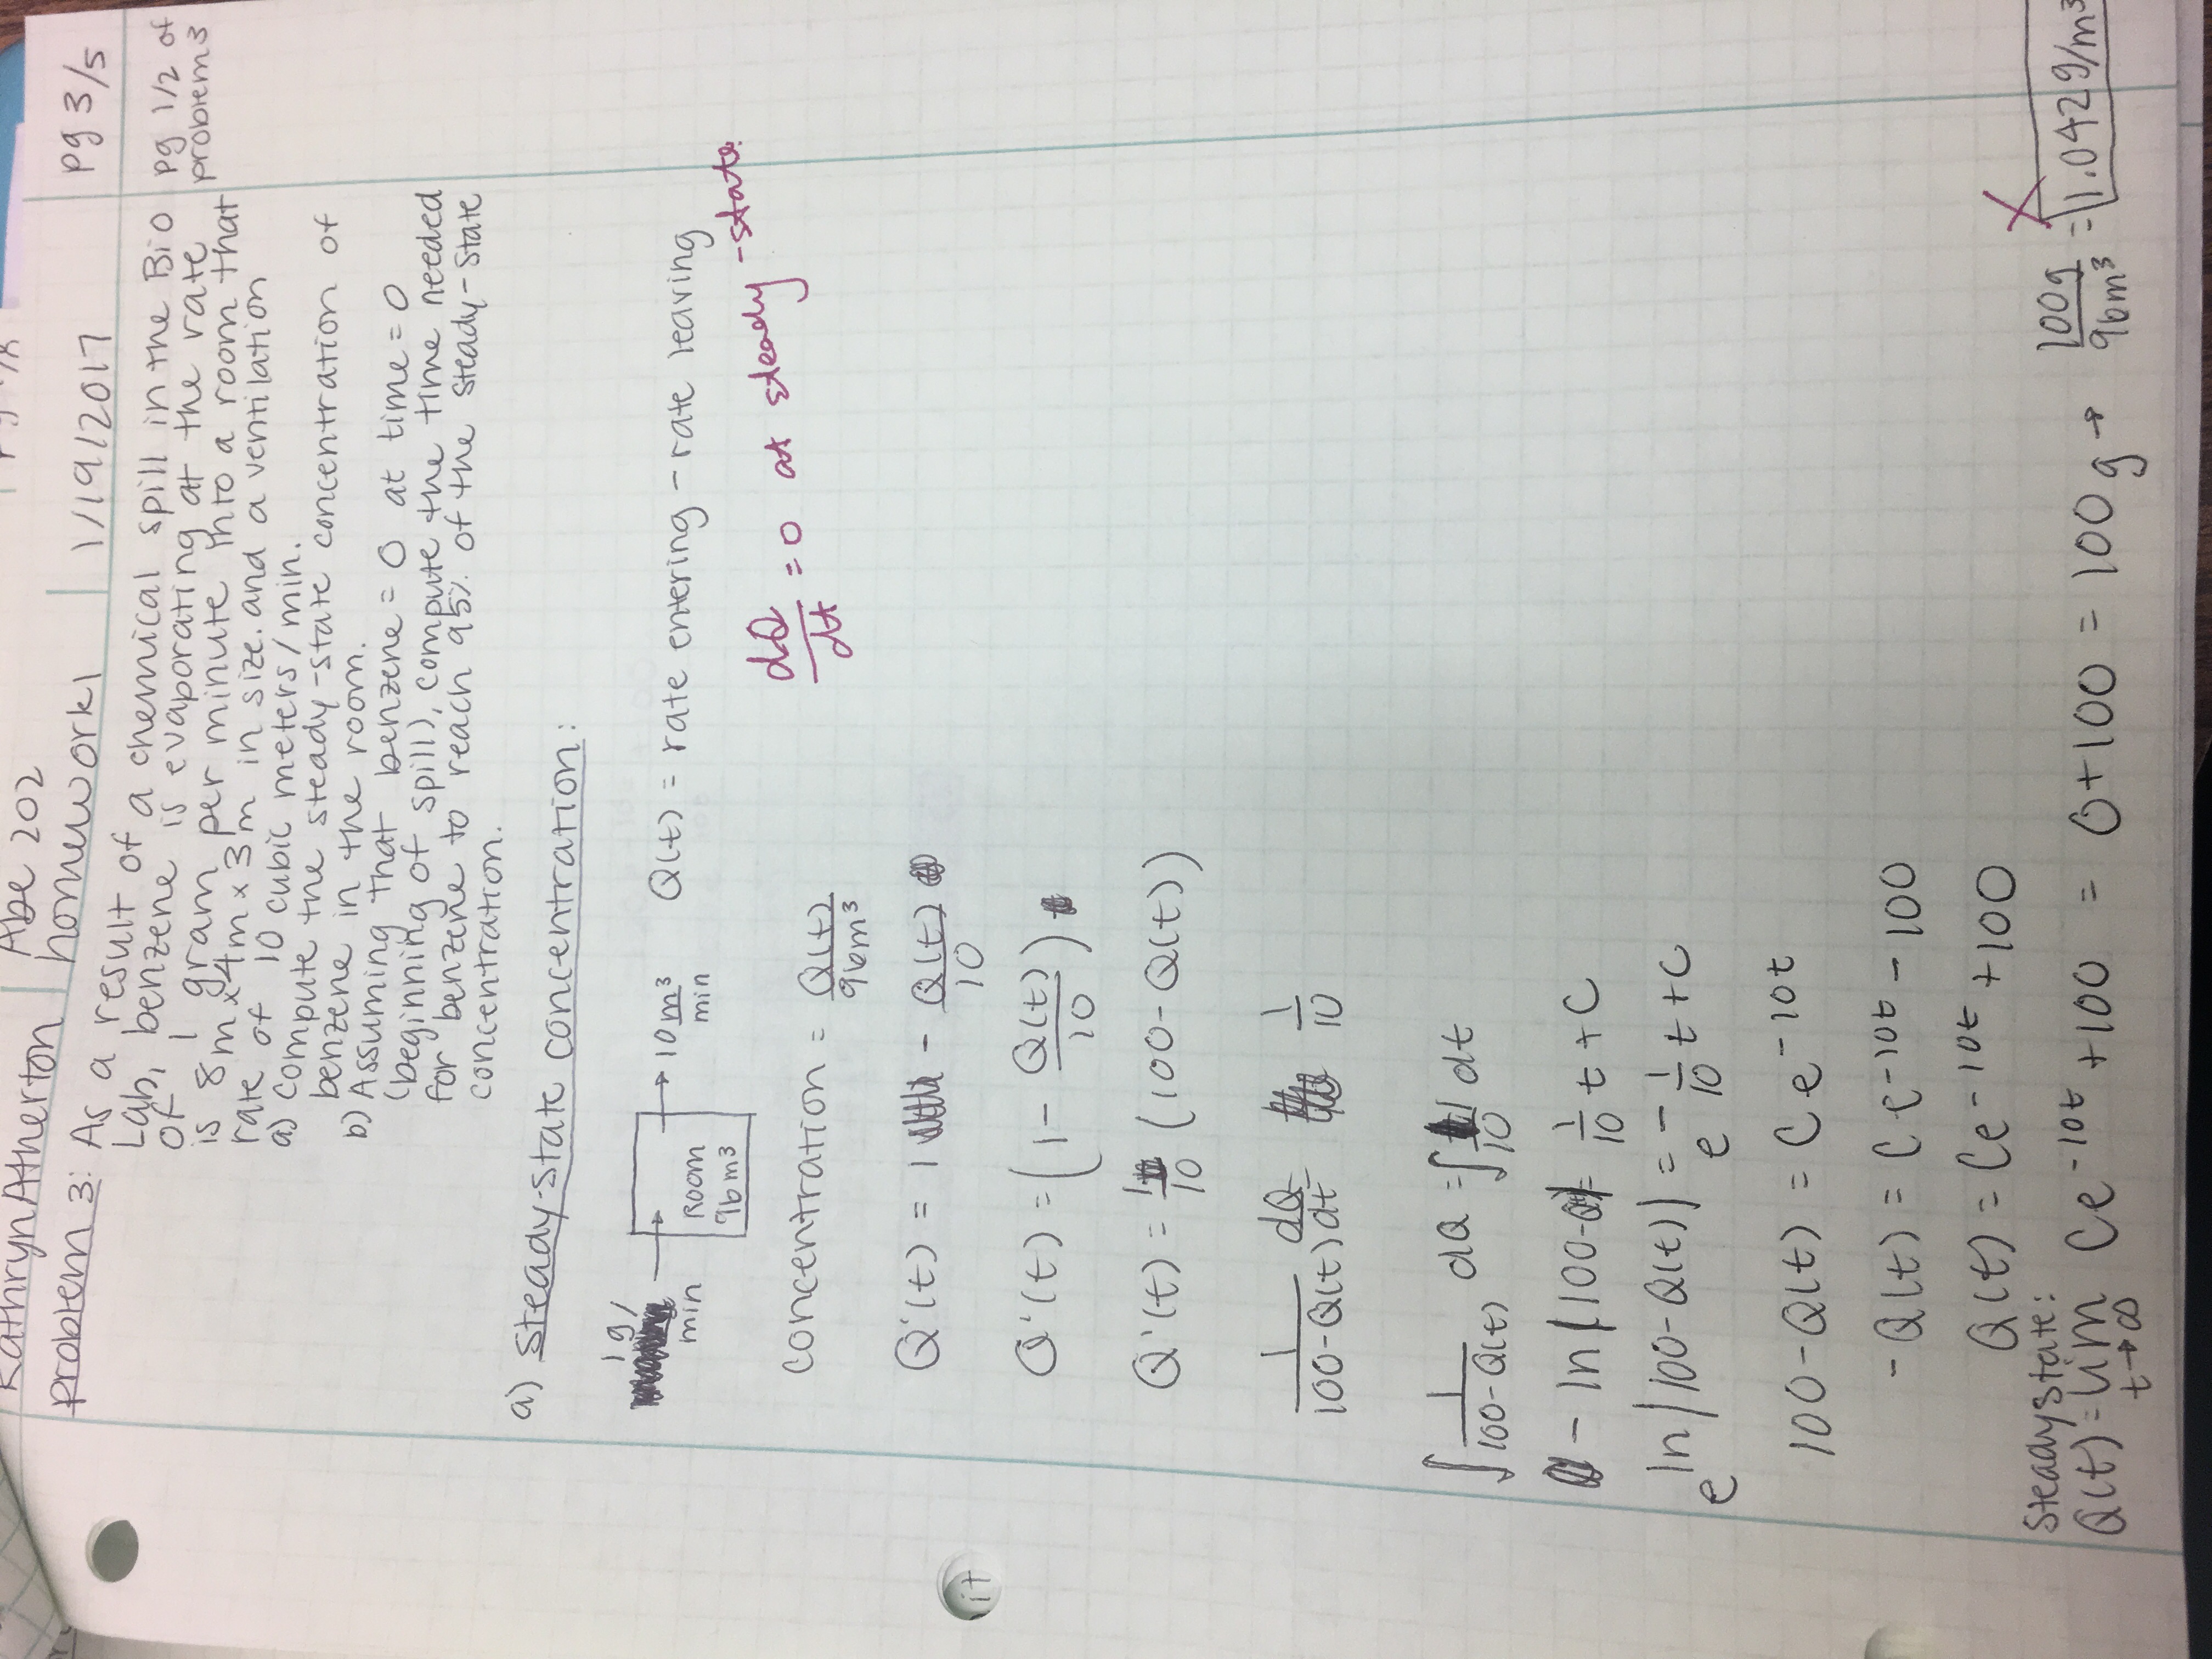 Kathryn Atherton
Abe 202
homework 1
1/19/2017
pg 3/5
problem 3: As a result of a chemical spill in the Bio
Lab, benzene is evaporating at the rate
of 1 gram per minute into a room that
is 8m x 4m x 3m in size. and a ventilation
rate of 10 cubic meters/min.
pg 1/2 of
problem 3
a) compute the steady-state concentration of
benzene in the room.
b) Assuming that benzene = 0 at time = 0
(beginning of spill), compute the time needed
for benzene to reach 95% of the steady-state
concentration.
a) steady-state concentration:
1 g/
min
Room
96m³
10 m³/min
Q(t) = rate entering - rate leaving
dQ/dt = 0 at steady-state.
concentration = Q(t)/96m³
Q'(t) = 1 - Q(t)/10
it
Q'(t) = (1 - Q(t)/10)
Q'(t) = 1/10 (100 - Q(t))
1/100-Q(t) dQ/dt 1/10
∫ 1/100-Q(t) dQ = ∫ 1/10 dt
- ln|100-Q| = 1/10 t + C
e^ln|100-Q(t)| = e^-1/10 t + C
100 - Q(t) = Ce^-10t
-Q(t) = Ce^-10t - 100
Q(t) = Ce^-10t + 100
Steady state:
Q(t) = lim t→∞ Ce^-10t + 100 = 0 + 100 = 100g → 100g/96m³ = 1.042 g/m³
X